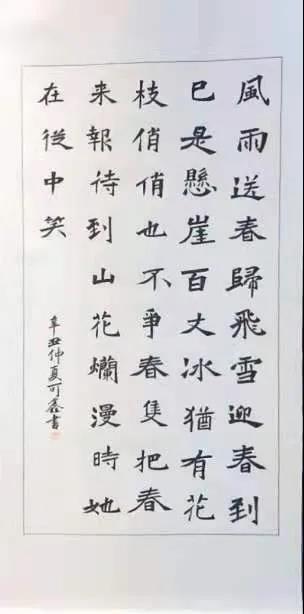 風雨送春歸飛雪迎春到
已是懸崖百丈冰猶有花
枝俏俏也不爭春隻把春
来報待到山花爛漫時她
在從中笑
辛丑仲夏可鑫書